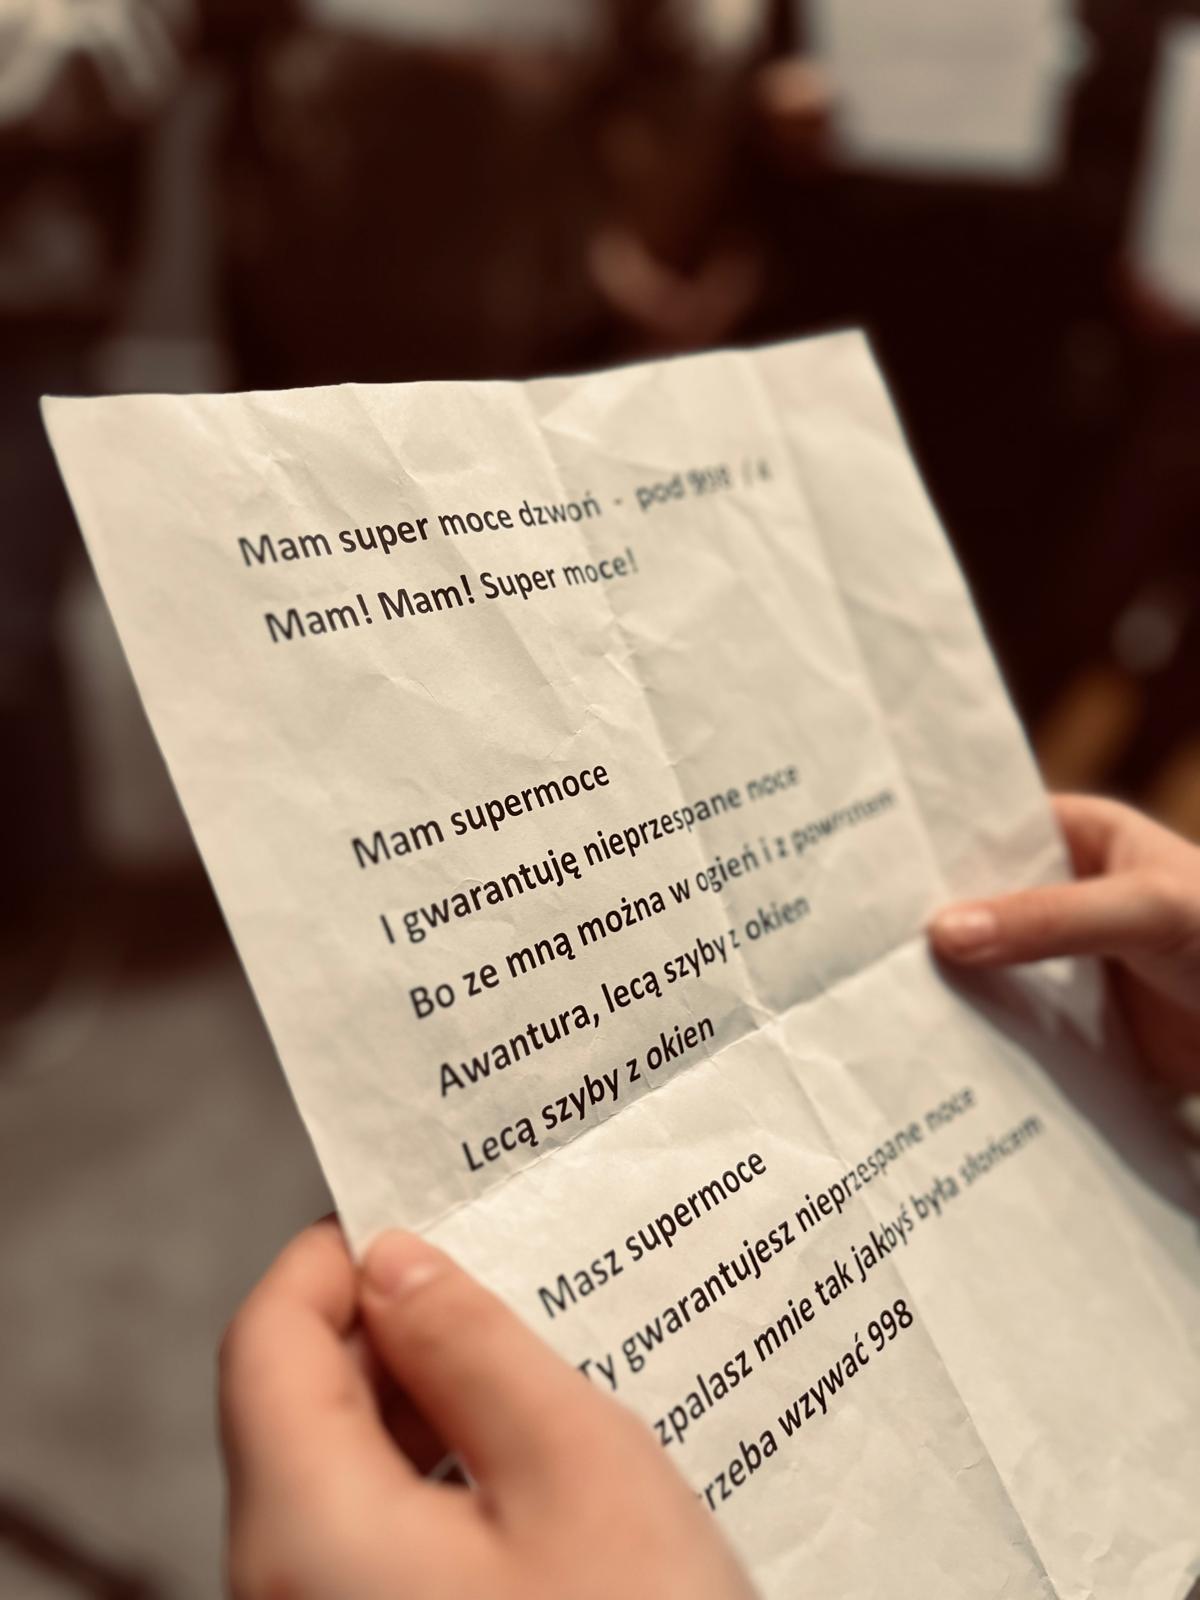 Mam super moce dzwoń - pod 998
Mam! Mam! Super moce!
Mam supermoce
I gwarantuję nieprzespane noce
Bo ze mną można w ogień i z powrotem
Awantura, lecą szyby z okien
Lecą szyby z okien
Masz supermoce
Ty gwarantujesz nieprzespane noce
zpalasz mnie tak jakbyś była słońcem
rzeba wzywać 998